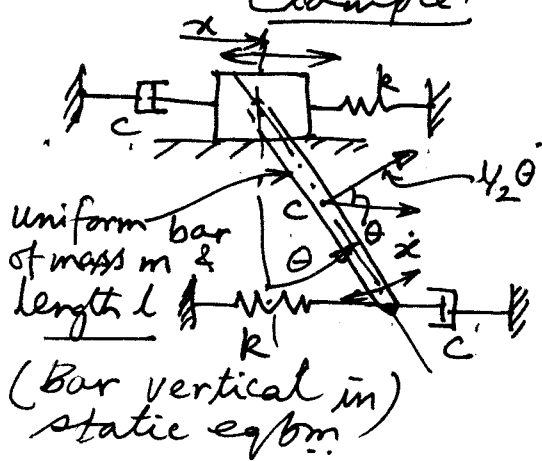 Example:
x
k
C
l/2 θ̇
C
θ
ẋ
uniform bar
of mass m &
length l
θ
k
C
(Bar vertical in
static eqbm)